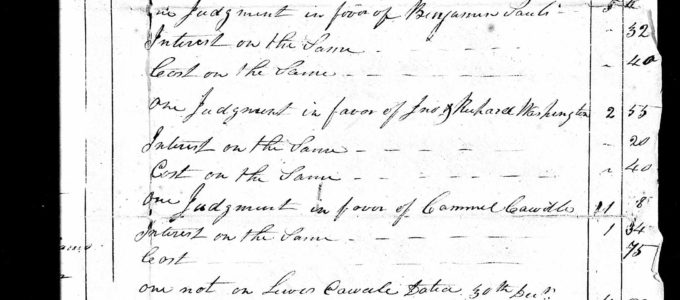 one Judgment in favor of Benjamin Sauls
Interest on the Same - - - - 32
Cost on the Same - - - - 40
One Judgment in favor of Jno & Richard Washington 2 55
Interest on the Same - - - - 20
Cost on the Same - - - - 40
One Judgment in favor of Cammel Cawdle 11 8
Interest on the Same - - - - 1 34
Cost 75
one not on Lewis Cawdle Dated 30th